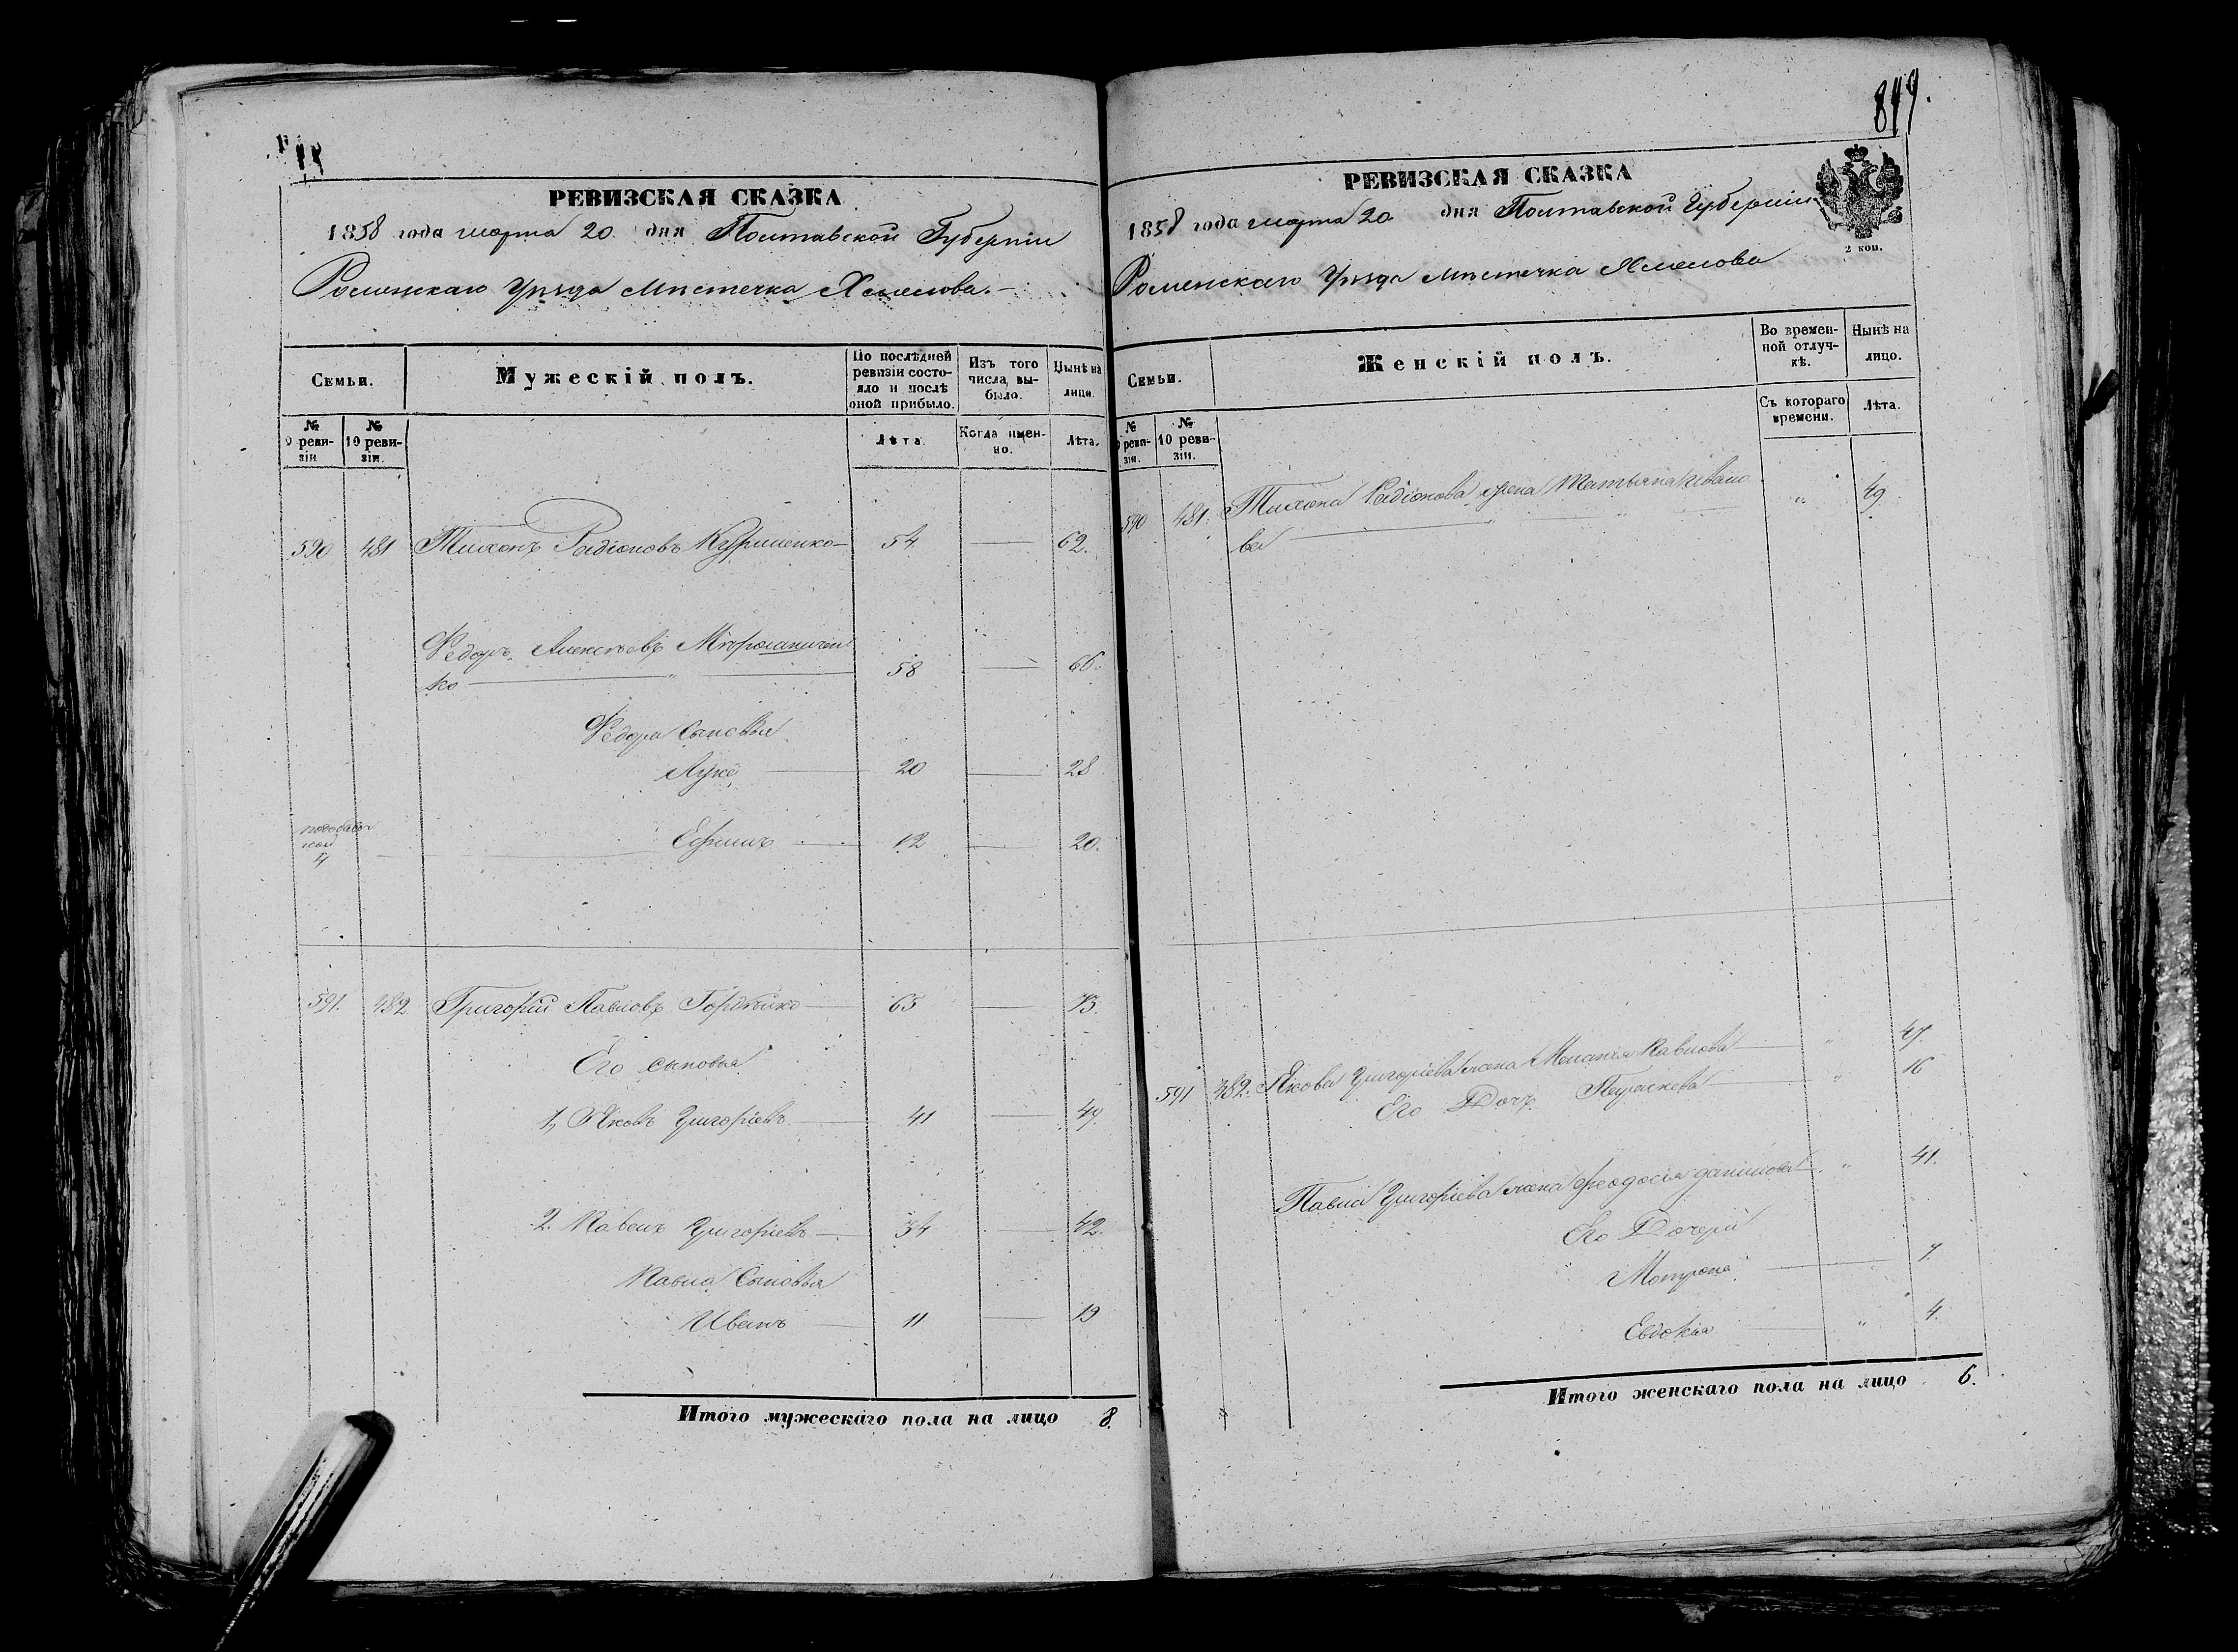 РЕВИЗСКАЯ СКАЗКА
1858 года марта 20. дня Полтавской Губерніи
Роменскаго Уѣзда Мѣстечка Хмелова.
Семьи.
Мужескій полъ.
По послѣдней ревизіи состояло и послѣ оной прибыло.
Изъ того числа выбыло.
Нынѣ на лицо.
№ 9 ревизіи
№ 10 ревизіи.
Лѣта.
Когда именно.
Лѣта.
590 481 Тихонъ Радіоновъ 54 62.
Федоръ Алексѣевъ
ко 58 66.
Федора Сыновья
Лука 20 28
Ефимъ 12 20.
591. 482 Григорій Павловъ Гордѣйко 65 73.
Его сыновья
1, Яковъ Григорьевъ 41 49.
2. Павелъ Григорьевъ 34 42.
Павла Сыновья
Иванъ 11 19
Итого мужескаго пола на лицо 8.
849.
РЕВИЗСКАЯ СКАЗКА
1858 года марта 20 дня Полтавской Губерніи
2 коп.
Роменскаго Уѣзда Мѣстечка Хмелова
Семьи.
Женскій полъ.
Во временной отлучкѣ.
Нынѣ на лицо.
№ 9 ревизіи.
№ 10 ревизіи.
Съ котораго времени.
Лѣта.
590 481. Тихона Радіонова жена Татьяна Ивано " 49.
ва
591 482. Якова Григорьева жена Меланія Павлова " 47.
Его Дочь Параскева " 16
Павла Григорьева жена Феодосія Данилова " 41.
Его Дочери
Мотрона 7.
Евдокія " 4.
Итого женскаго пола на лицо 6.